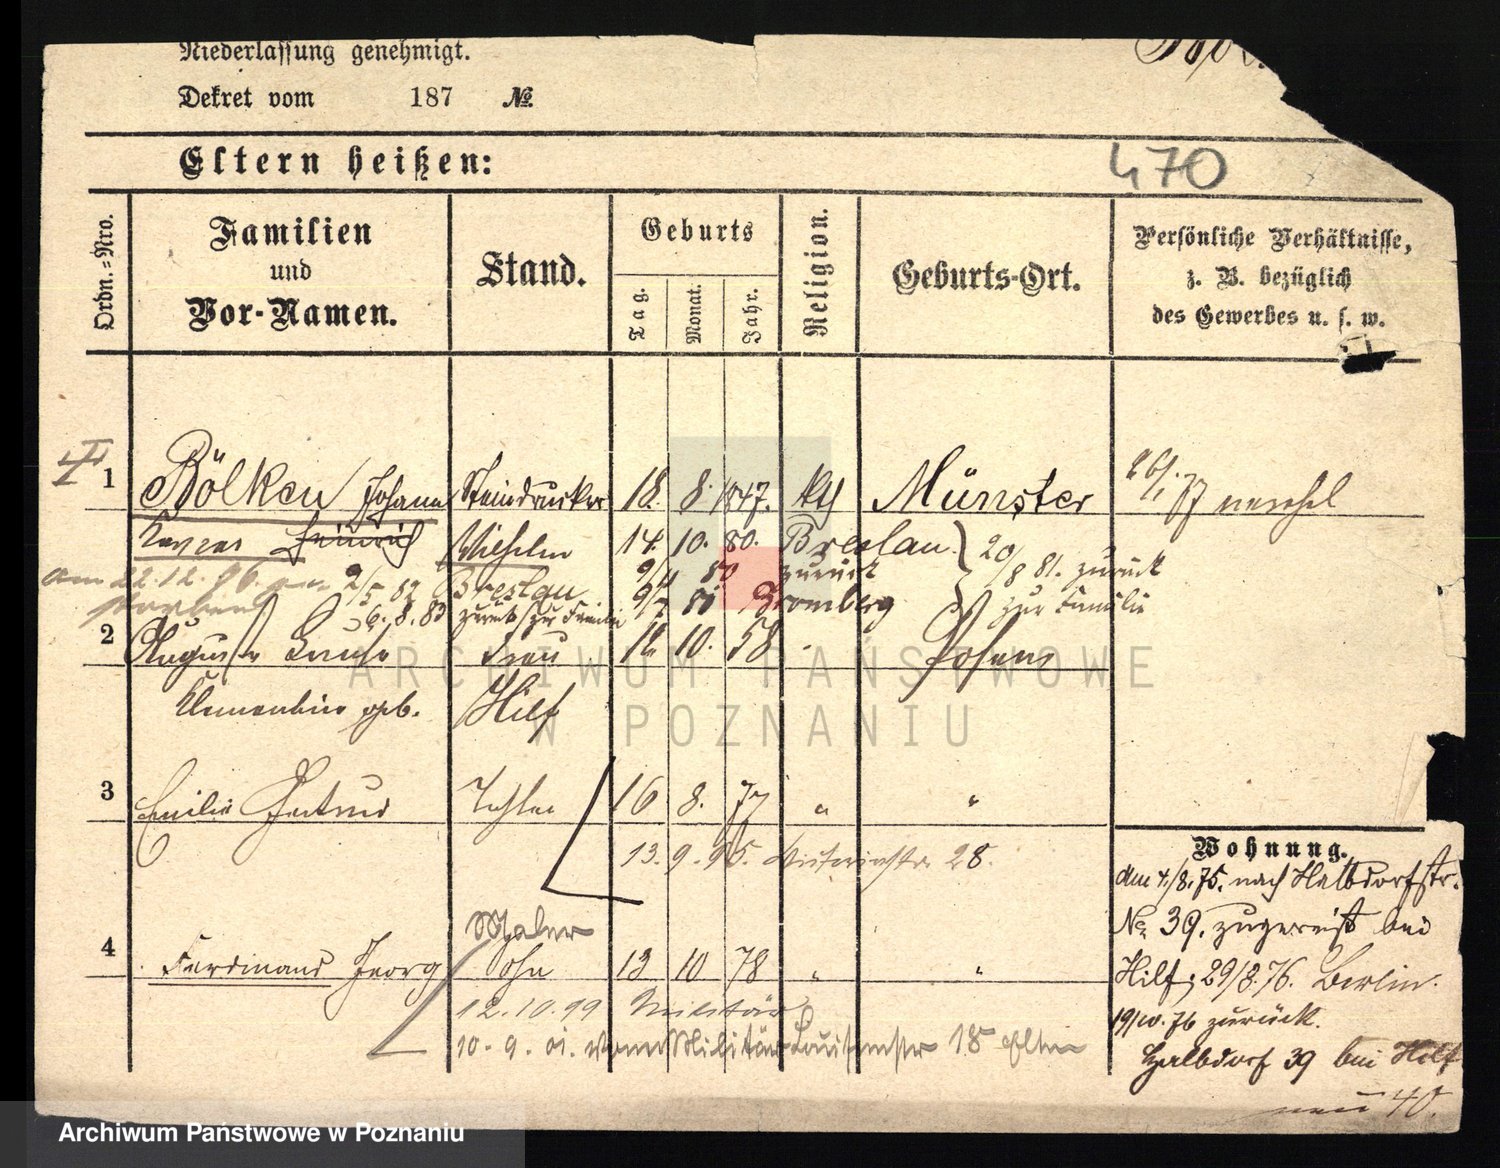 Niederlassung genehmigt.
Dekret vom 187 №
Eltern heißen:
470
Ordn.=Nro.
Familien
und
Vor-Namen.
Stand.
Geburts
Tag.
Monat.
Jahr.
Religion.
Geburts-Ort.
Persönliche Verhältnisse,
z. B. bezüglich
des Gewerbes u. s. w.
1 Bölken Johann Steindrucker 18. 8. 1847. kth Münster 26/1 77
Xaver Heinrich Wilhelm 14. 10. 80. Breslau 20/8 81. zurück
am 22.12.96. 2/5 82 Breslau 9/11 80 zurück zur Familie
6.8.83 zurück zur Familie 9/7 81 Bromberg
2 Auguste Louise Frau 12 10. 58 Posen
Klementine geb. Hilf
3 Emilie Gertrud Tochter 16 8. 77 " "
13. 9. 95. Victoriastr. 28.
4 Ferdinand Georg Maler Sohn 13 10 78 " "
12.10.99 Militär
10.9.01. vom Militär Louisenstr 18 Eltern
Wohnung.
am 4/8.75. nach Halbdorfstr.
No. 39. zugereist bei
Hilf; 29/8.76. Berlin.
19/10.76 zurück.
Halbdorf 39 bei Hilf
neu 40.
ARCHIWUM PAŃSTWOWE
W POZNANIU
Archiwum Państwowe w Poznaniu